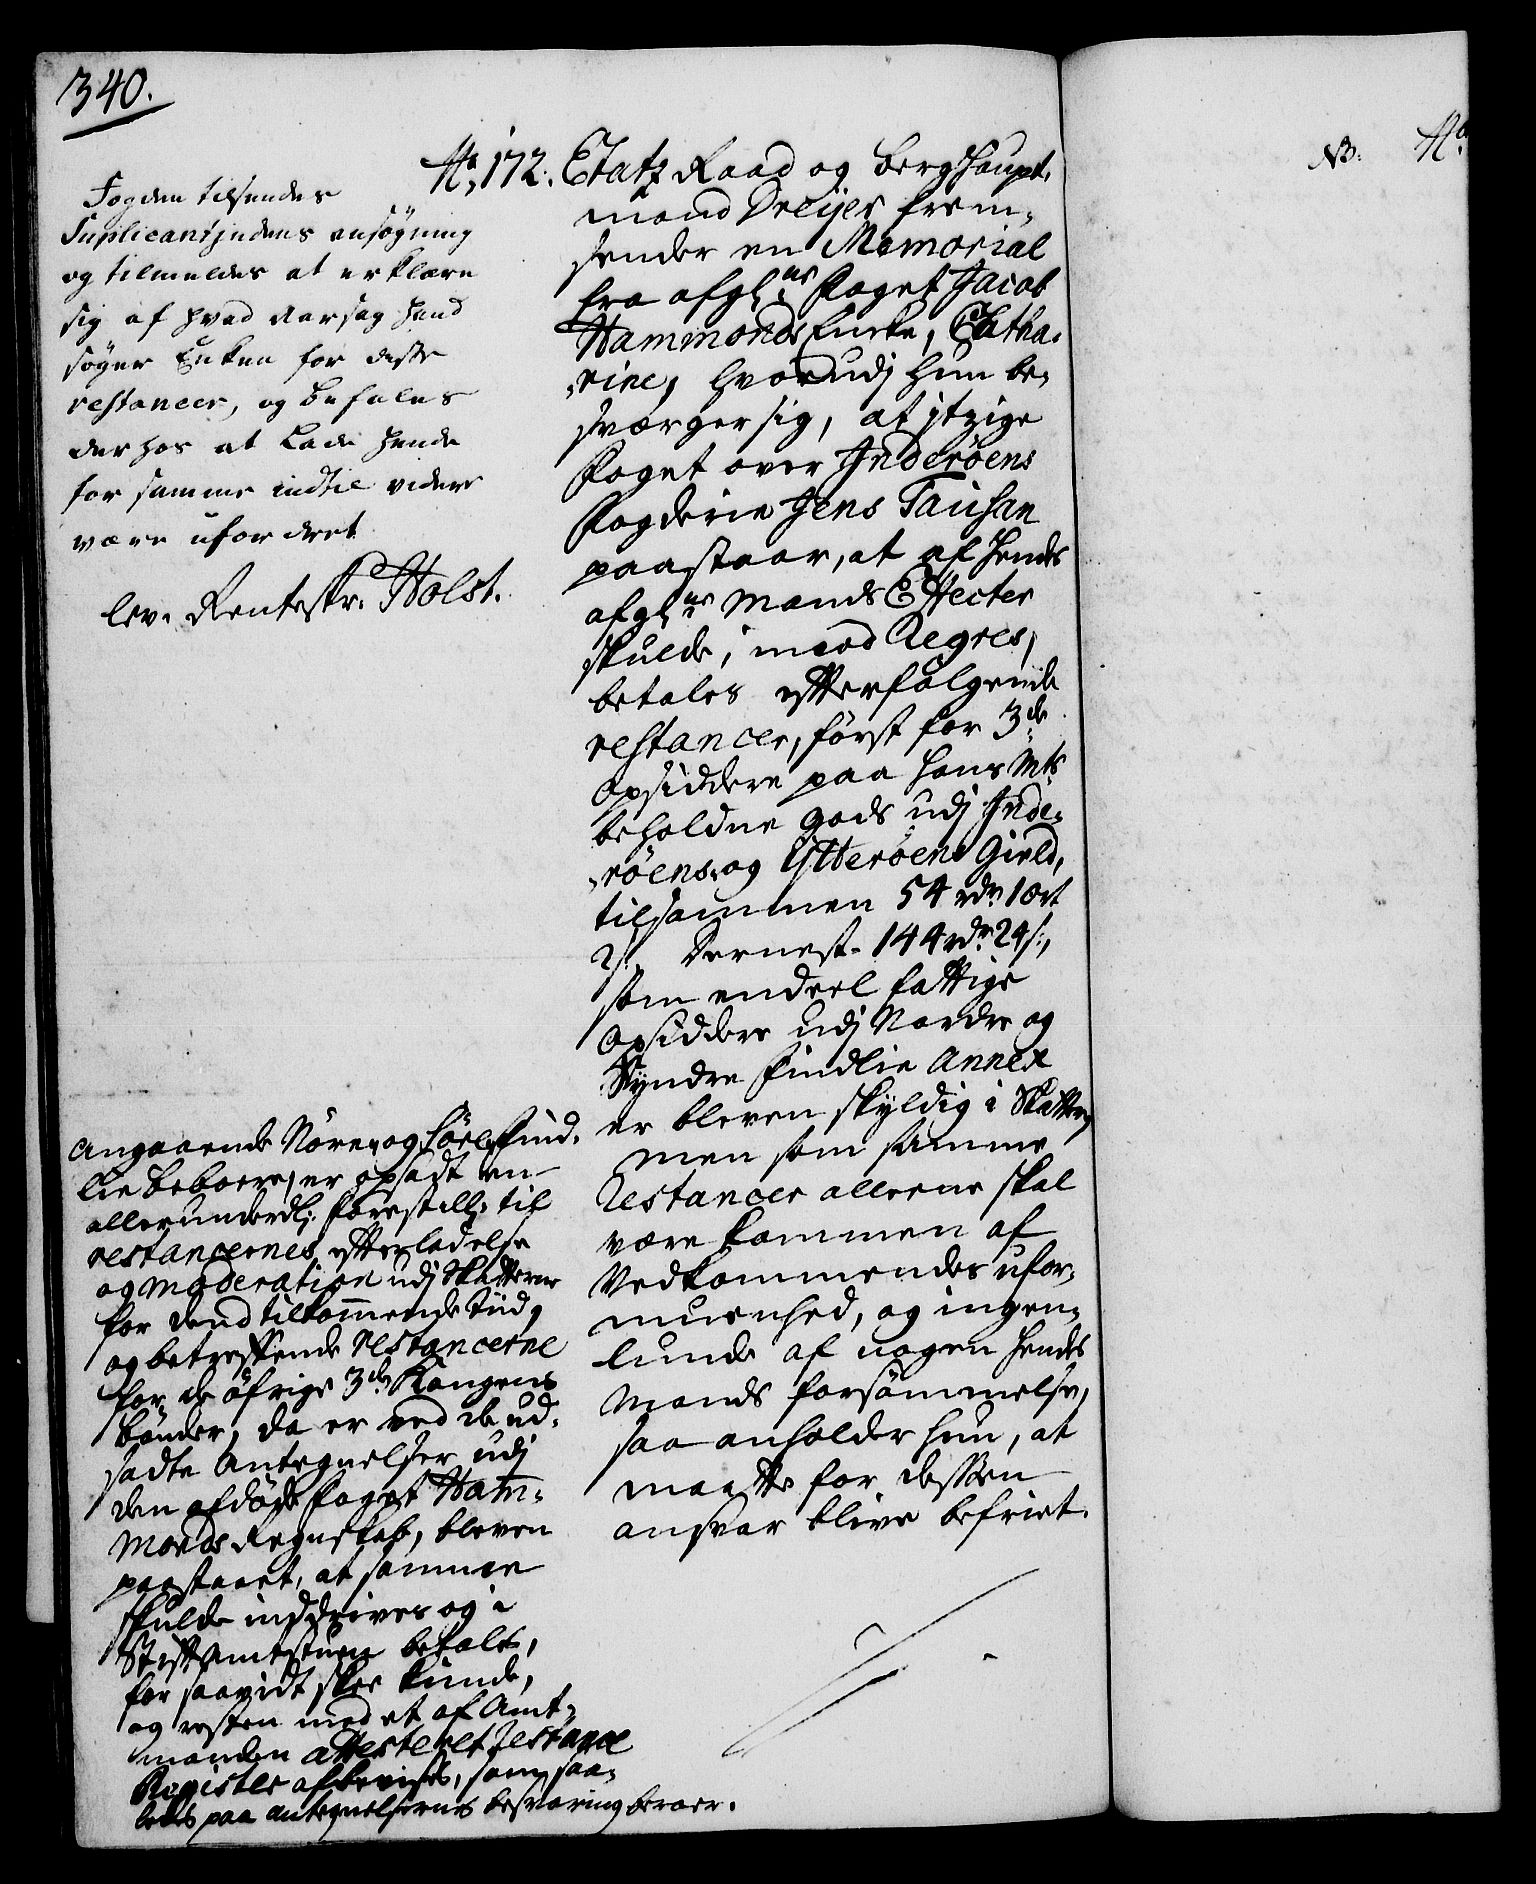 340.
No. 172. Etatz Raad og Berghaupt,
mand Dreijer frem,
sender en Memorial
fra afgl: ns Foget Jacob
Hammonds Encke, Catha,
,rine, hvorudj hun be,
sværger sig, at jtzige
Foget over Jnderöens
Fogderie Jens Tausan
paastaar, at af hendes
afgl: ns Mands Effecter
skulde, imod Regres,
betales efterfölgende
restancer, först for 3de
opsiddere paa Hans Mts
beholdne gods udj Jnde,
,röens og Ytteröens Gield,
tilsammen 54 rdr 1 ort
2 s:, dernest 144 rdr 24 s:,
som endeel fattige
opsiddere udj Nordre og
Syndre Findlie Annex
er bleven skyldig i Skatter,
men som samme
Restancer alleene skal
være kommen af
Vedkommendes ufor,
muenhed, og ingen,
lunde af nogen hendes
Mands forsömmelse,
saa anholder hun, at
maatte for dessen
ansvar blive befriet.
Fogden tilsendes
Suplicantindens ansøgning
og tilmeldes at erklære
sig af hvad aarsag hand
søger Enken for disse
restancer, og befales
derhos at lade hende
for samme indtil videre
være ufordret
lev. Renteskr. Holst.
Angaaende Nöre og Söre Find,
lie beboere, er opsadt en
allerunderdl: forestill: til
restancernes efterladelse
og moderation udj Skatterne
for dend tilkommende tiid,
og betreffende restancerne
for de öfrige 3de Kongens
bönder, da er ved de ud,
sadte Antegnelser udj
den afdöde Foget Ham,
monds Regnskab, bleven
paastaaet, at samme
skulde inddrives og i
Stiftamtstuen betales,
for saavidt skee kunde,
og resten med et af Amt,
manden attesteret Restance
Register afbevises, som saa,
ledes paa Antegnelsernes besvaring beroer.
NB:
No